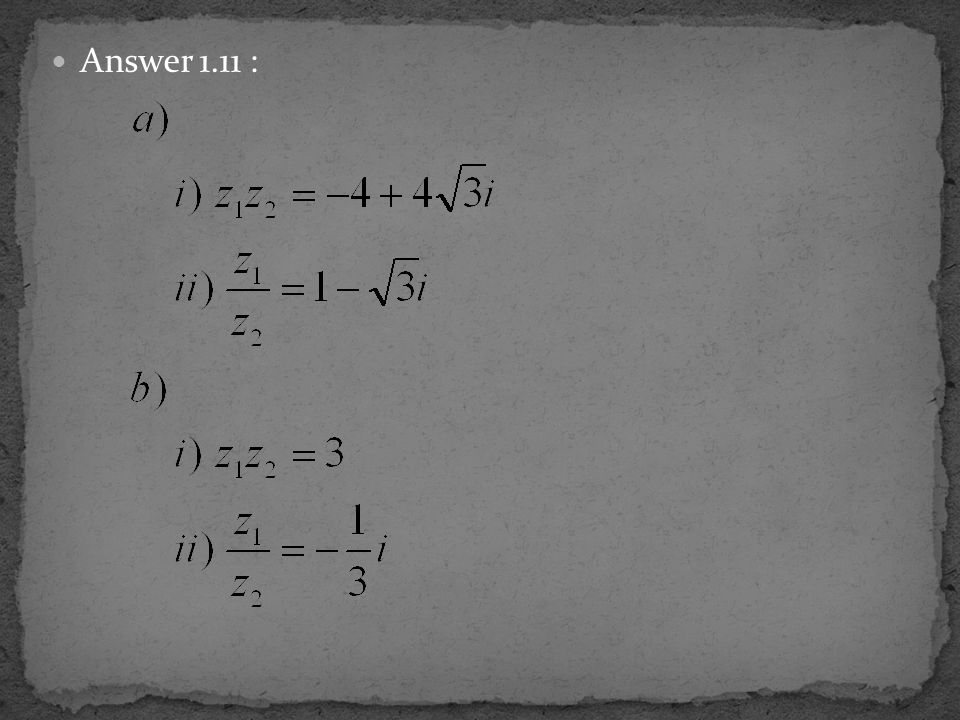 • Answer 1.11 :
a)
i) z₁z₂ = −4 + 4√3i
ii) z₁/z₂ = 1 − √3i
b)
i) z₁z₂ = 3
ii) z₁/z₂ = −1/3 i